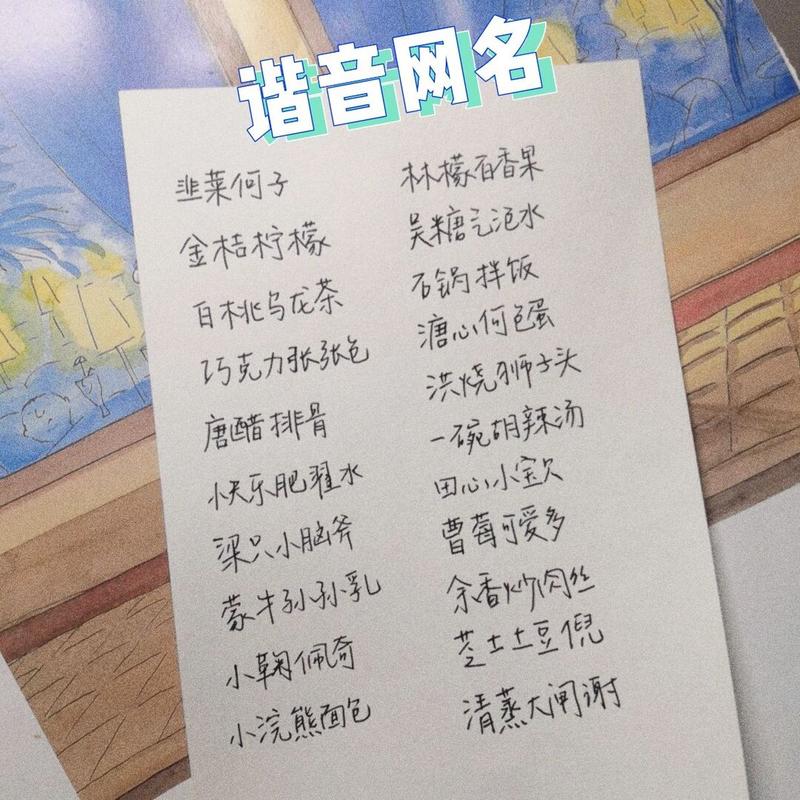 谐音网名
韭菜何子
金桔柠檬
白桃乌龙茶
巧克力张张包
唐醋排骨
快乐肥翟水
梁只小脑斧
蒙牛孙孙乳
小鞠佩奇
小浣熊面包
林檬百香果
吴糖气泡水
石锅拌饭
溏心何包蛋
洪烧狮子头
一碗胡辣汤
田心小宝贝
曹莓可爱多
余香炒肉丝
芝士土豆倪
清蒸大闸谢